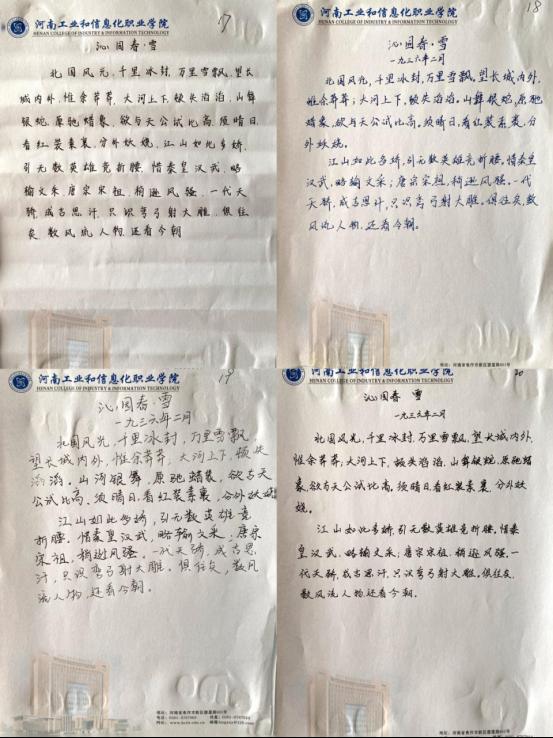 河南工业和信息化职业学院
HENAN COLLEGE OF INDUSTRY & INFORMATION TECHNOLOGY
17
沁园春·雪
北国风光,千里冰封,万里雪飘,望长
城内外,惟余莽莽,大河上下,顿失滔滔,山舞
银蛇,原驰蜡象,欲与天公试比高,须晴日,
看红装素裹,分外妖娆,江山如此多娇,
引无数英雄竞折腰,惜秦皇汉武,略
输文采,唐宗宋祖,稍逊风骚,一代天
骄,成吉思汗,只识弯弓射大雕,俱往
矣,数风流人物,还看今朝
河南工业和信息化职业学院
HENAN COLLEGE OF INDUSTRY & INFORMATION TECHNOLOGY
18
沁园春·雪
一九三六年二月
北国风光,千里冰封,万里雪飘。望长城内外,
惟余莽莽;大河上下,顿失滔滔。山舞银蛇,原驰
蜡象,欲与天公试比高。须晴日,看红装素裹,分
外妖娆。
江山如此多娇,引无数英雄竞折腰,惜秦皇
汉武,略输文采;唐宗宋祖,稍逊风骚。一代
天骄,成吉思汗,只识弯弓射大雕。俱往矣,数
风流人物,还看今朝。
河南工业和信息化职业学院
HENAN COLLEGE OF INDUSTRY & INFORMATION TECHNOLOGY
19
沁园春·雪
一九三六年二月
北国风光,千里冰封,万里雪飘
望长城内外,惟余莽莽,大河上下,顿失
滔滔,山河银舞,原驰蜡象,欲与天
公试比高,须晴日,看红装素裹,分外妖娆
江山如此多娇,引无数英雄竞
折腰,惜秦皇汉武,略输文采,唐宗
宋祖,稍逊风骚。一代天骄,成吉思
汗,只识弯弓射大雕。俱往矣,数风
流人物,还看今朝。
河南工业和信息化职业学院
HENAN COLLEGE OF INDUSTRY & INFORMATION TECHNOLOGY
20
沁园春 雪
一九三六年二月
北国风光,千里冰封,万里雪飘,望长城内外,
惟余莽莽;大河上下,顿失滔滔,山舞银蛇,原驰蜡
象,欲与天公试比高,须晴日,看红装素裹,分外妖
娆。
江山如此多娇,引无数英雄竞折腰,惜秦
皇汉武,略输文采;唐宗宋祖,稍逊风骚,一
代天骄,成吉思汗,只识弯弓射大雕。俱往矣,
数风流人物,还看今朝。